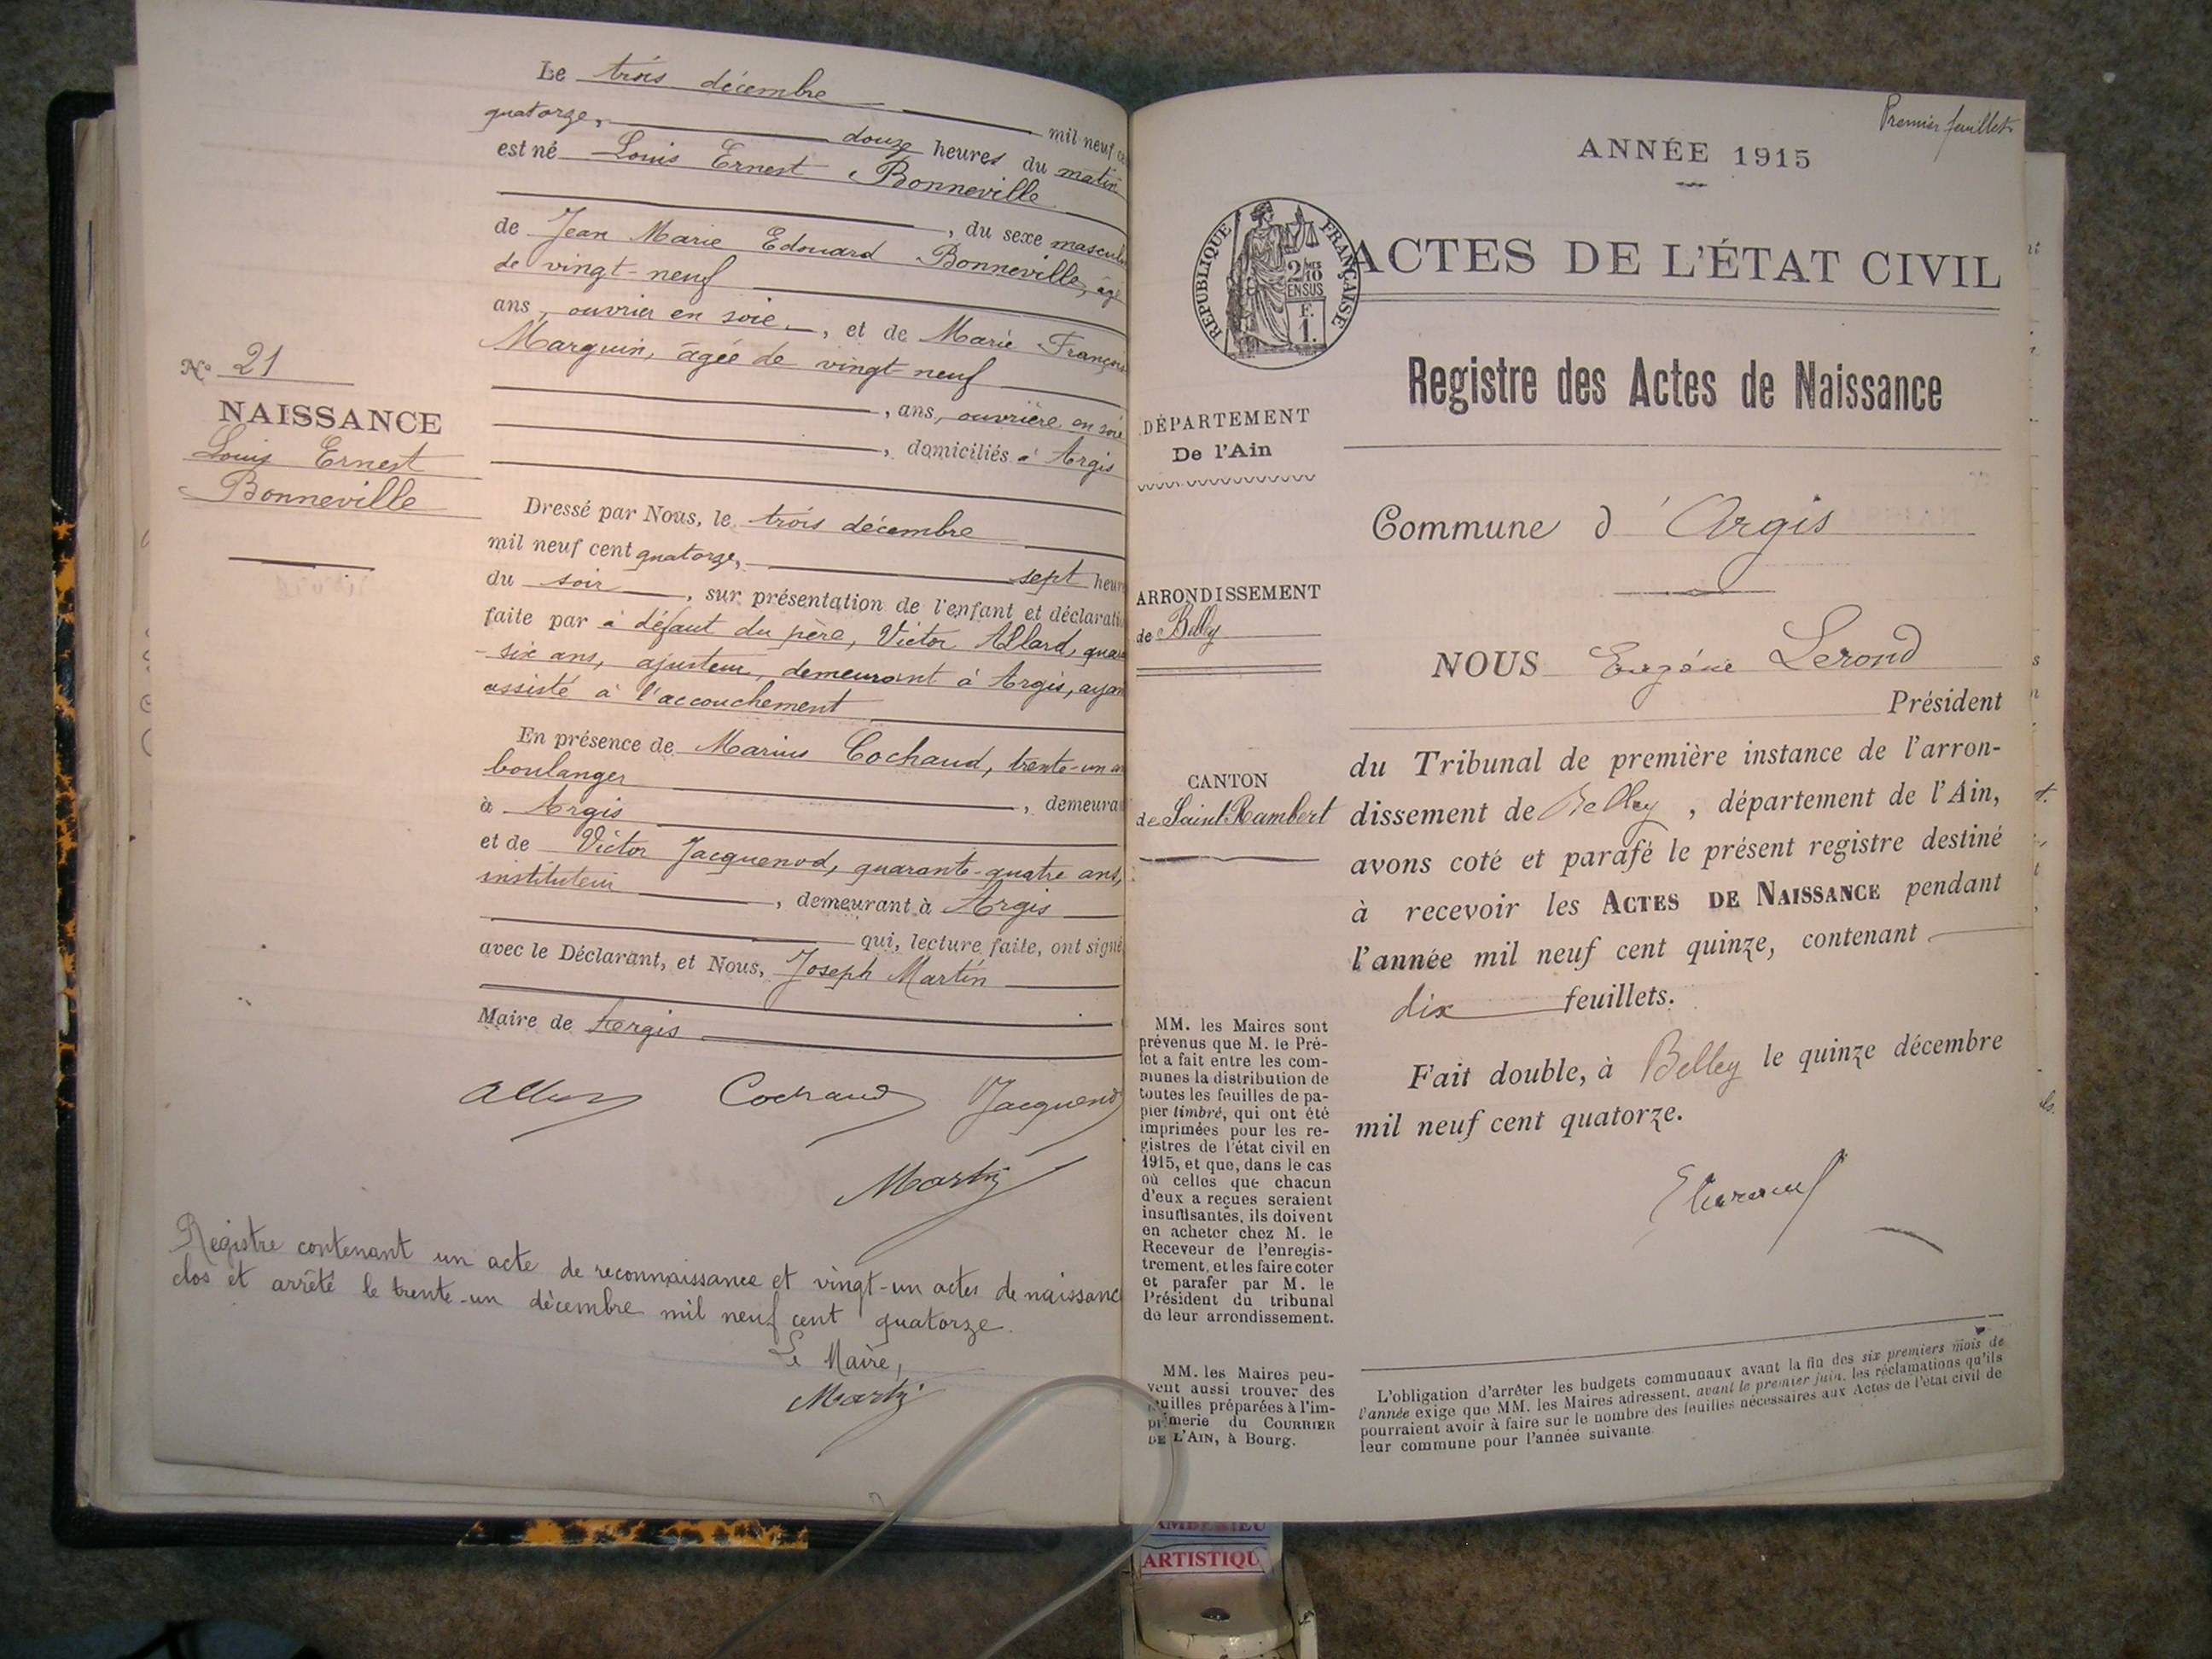 Le trois décembre mil neuf
quatorze, douze heures du matin
est né Louis Ernest Bonneville
, du sexe mascul
de Jean Marie Edouard Bonneville, âg
de vingt-neuf
ans, ouvrier en soie, et de Marie François
Marguin, âgée de vingt-neuf
, ans, ouvrière en soie
, domiciliés à Argis
N° 21
NAISSANCE
Louis Ernest
Bonneville
Dressé par Nous, le trois décembre
mil neuf cent quatorze, sept heur
du soir, sur présentation de l'enfant et déclarati
faite par à défaut du père, Victor Allard, quar
-six ans, ajusteur, demeurant à Argis, ayan
assisté à l'accouchement
En présence de Marius Cochaud, trente-un an
boulanger
, demeura
à Argis
et de Victor Jacquenod, quarante-quatre ans,
instituteur, demeurant à Argis
qui, lecture faite, ont signé
avec le Déclarant, et Nous, Joseph Martin
Maire de Argis
Cochaud Jacquenod
Martin
Registre contenant un acte de reconnaissance et vingt-un actes de naissanc
clos et arrêté le trente-un décembre mil neuf cent quatorze.
Le Maire,
Martin
Premier feuillet
ANNÉE 1915
RÉPUBLIQUE FRANÇAISE
2/10
EN SUS
F.
1.
ACTES DE L'ÉTAT CIVIL
Registre des Actes de Naissance
DÉPARTEMENT
De l'Ain
ARRONDISSEMENT
de Belley
CANTON
de Saint-Rambert
Commune d'Argis
NOUS Eugène Lerond
Président
du Tribunal de première instance de l'arron-
dissement de Belley, département de l'Ain,
avons coté et parafé le présent registre destiné
à recevoir les ACTES DE NAISSANCE pendant
l'année mil neuf cent quinze, contenant
dix feuillets.
Fait double, à Belley le quinze décembre
mil neuf cent quatorze.
MM. les Maires sont
prévenus que M. le Pré-
fet a fait entre les com-
munes la distribution de
toutes les feuilles de pa-
pier timbré, qui ont été
imprimées pour les re-
gistres de l'état civil en
1915, et que, dans le cas
où celles que chacun
d'eux a reçues seraient
insuffisantes, ils doivent
en acheter chez M. le
Receveur de l'enregis-
trement, et les faire coter
et parafer par M. le
Président du tribunal
de leur arrondissement.
MM. les Maires peu-
vent aussi trouver des
feuilles préparées à l'im-
primerie du COURRIER
DE L'AIN, à Bourg.
L'obligation d'arrêter les budgets communaux avant la fin des six premiers mois de
l'année exige que MM. les Maires adressent, avant le premier juin, les réclamations qu'ils
pourraient avoir à faire sur le nombre des feuilles nécessaires aux Actes de l'état civil de
leur commune pour l'année suivante.
AMBERIEU
ARTISTIQU